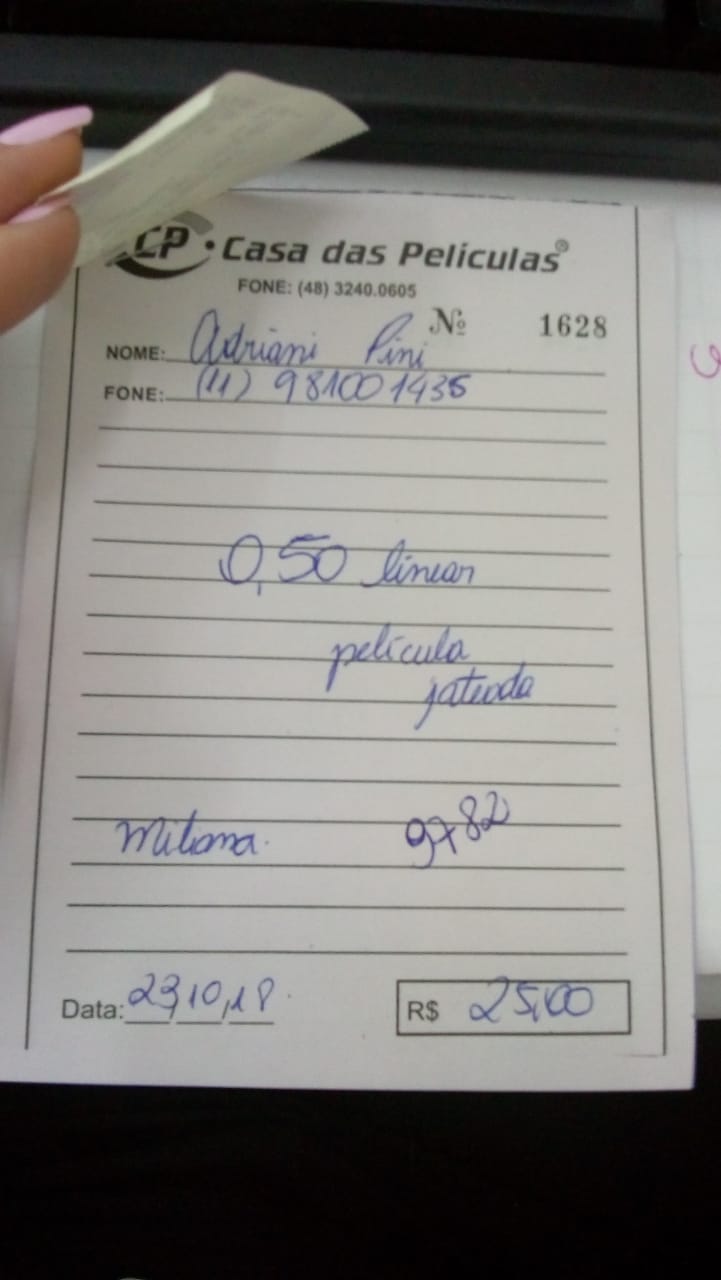 CP • Casa das Películas®
FONE: (48) 3240.0605
Nº 1628
NOME: Adriani Pini
FONE: (11) 981001435
0,50 linear
película
jateada
9782
Data: 23,10,18
R$ 25,00